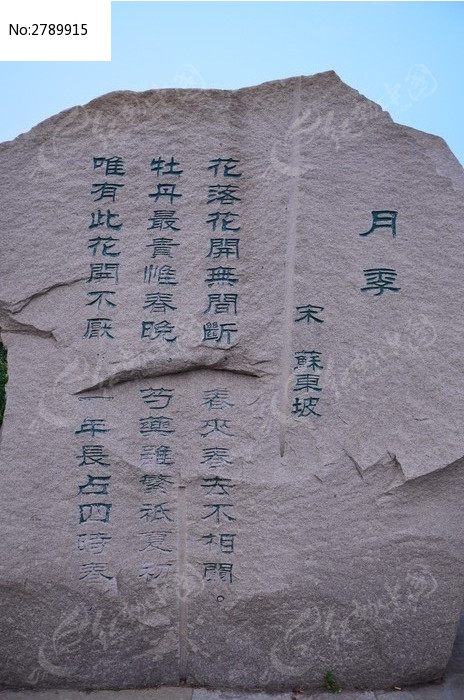 No:2789915
月季
宋 蘇東坡
花落花開無間斷 春來春去不相關。
牡丹最貴惟春晚 芍藥雖繁祇夏初
唯有此花開不厭 一年長占四時春